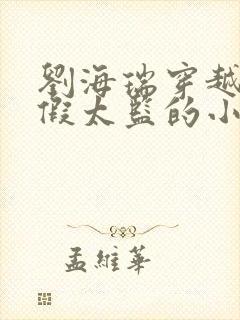 劉海瑞穿越
假太監的小
孟維華